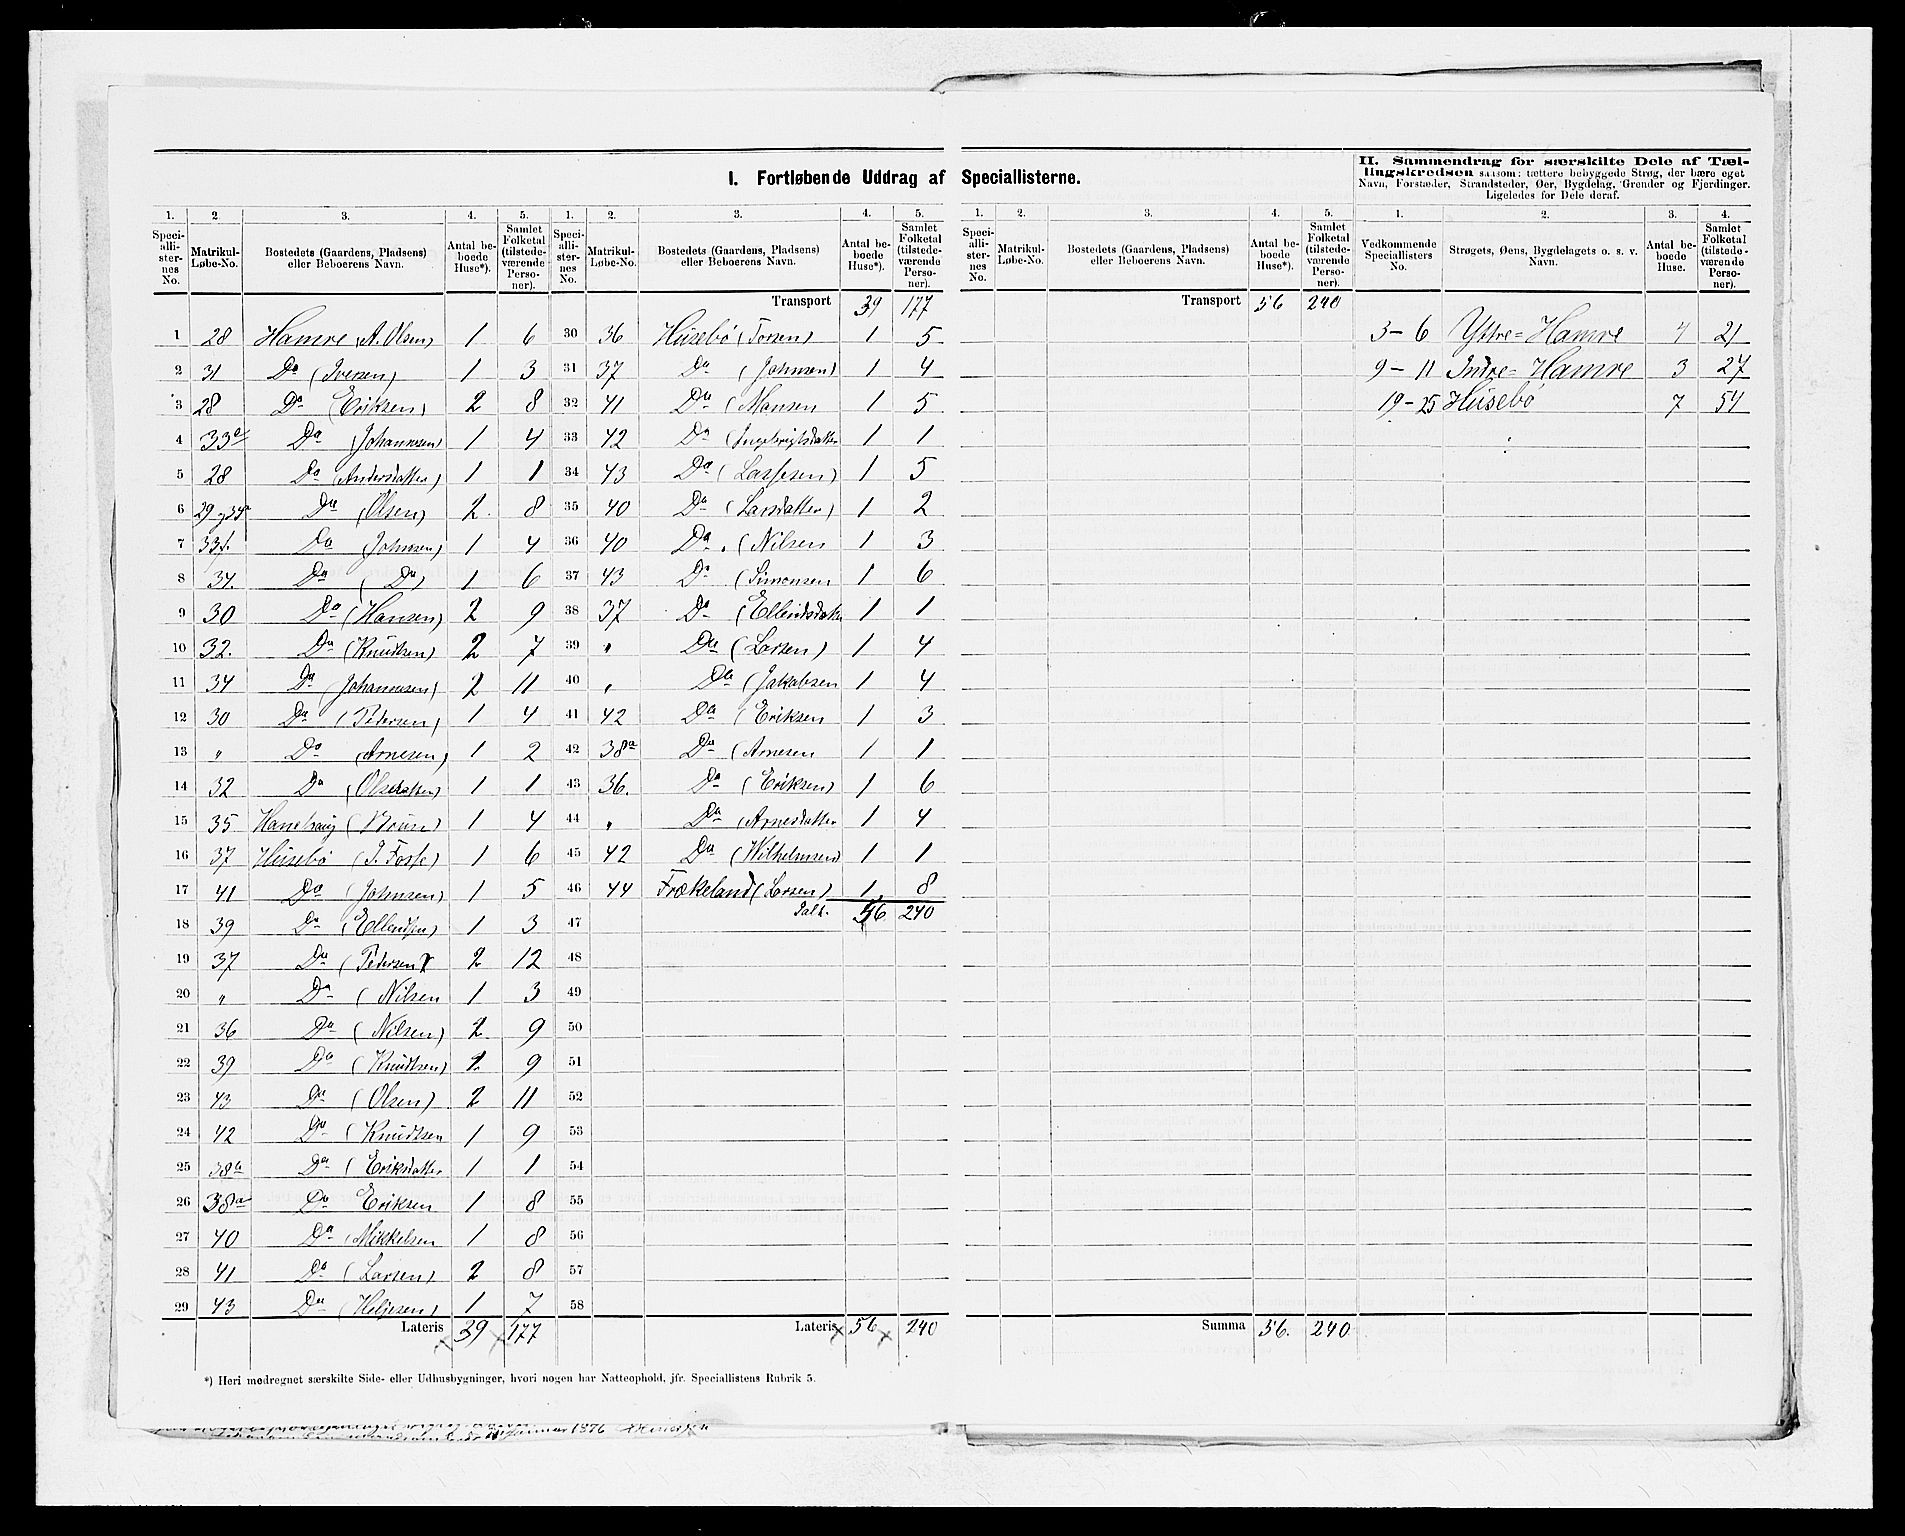 I. Fortløbende Uddrag af Speciallisterne.
II. Sammendrag for særskilte Dele af Tæl-
lingskredsen saasom: tættere bebyggede Strøg, der bære eget
Navn, Forstæder, Strandsteder, Øer, Bygdelag, Grender og Fjerdinger.
Ligeledes for Dele deraf.
1. 2. 3. 4. 5. 1. 2. 3. 4. 5.
Speciallisternes No. Matrikul-Løbe-No. Bostedets (Gaardens, Pladsens) eller Beboerens Navn. Antal beboede Huse*). Samlet Folketal (tilstedeværende Personer). Speciallisternes No. Matrikul-Løbe-No. Bostedets (Gaardens, Pladsens) eller Beboerens Navn. Antal beboede Huse*). Samlet Folketal (tilstedeværende Personer).
Transport 39 177
1 28 Hamre (A. Olsen) 1 6 30 36 Husebö (Torsen) 1 5
2 31 Do (Iversen) 1 3 31 37 Do (Johnsen) 1 4
3 28 Do (Eriksen) 2 8 32 41 Do (Monsen 1 5
4 33a Do (Johannesen) 1 4 33 42 Do (Ingebrigtsdatter 1 1
5 28 Do (Andersdatter) 1 1 34 43 Do (Lassesen) 1 5
6 29 og 34a Do (Olsen) 2 8 35 40 Do (Larsdatter) 1 2
7 33 Do (Johnsen) 1 4 36 40 Do (Nilsen 1 3
8 34. Do (Do) 1 6 37 43 Do (Simonsen 1 6
9 30 Do (Hansen) 2 9 38 37 Do (Ellendsdatter 1 1
10 32. Do (Knudtsen) 2 7 39 " Do (Larsen) 1 4
11 34 Do (Johannesen) 2 11 40 " Do (Jakobsen 1 4
12 30 Do (Pedersen) 1 4 41 42 Do (Eriksen 1 3
13 " Do (Arnesen) 1 2 42 38a Do (Arnesen 1 1
14 32 Do (Olsdatter) 1 1 43 36. Do (Eriksen) 1 6
15 35 Hanehaug (Bruun) 1 4 44 " Do (Arnesdatter 1 4
16 37 Husebö (J. Fosse) 1 6 45 42 Do (Wilhelmsen) 1 1
17 41 Do (Johnsen) 1 5 46 44 Frækeland (Larsen) 1 8
18 39 Do (Ellendsen) 1 3 47 Ialt. 56 240
19 37 Do (Pedersen) 2 12 48
20 " Do (Nilsen 1 3 49
21 36 Do (Nilsen) 2 9 50
22 39 Do (Knudtsen) 1 9 51
23 43 Do (Olsen) 2 11 52
24 42 Do (Knudtsen 1 9 53
25 38a Do (Eriksdatter 1 1 54
26 38a Do Eriksen 1 8 55
27 40 Do (Mikkelsen 1 8 56
28 41 Do (Larsen) 2 8 57
29 43 Do (Heljesen) 1 7 58
Lateris 39 177 Lateris 56 240
*) Heri medregnet særskilte Side- eller Udhusbygninger, hvori nogen har Natteophold, jfr. Speciallistens Rubrik 5.
Januar 1876
1. 2. 3. 4. 5. 1. 2. 3. 4.
Speciallisternes No. Matrikul-Løbe-No. Bostedets (Gaardens, Pladsens) eller Beboerens Navn. Antal beboede Huse*). Samlet Folketal (tilstedeværende Personer). Vedkommende Speciallisters No. Strøgets, Øens, Bygdelagets o. s. v. Navn. Antal beboede Huse. Samlet Folketal (tilstedeværende Personer).
Transport 56 240
3-6 Yttre=Hamre 4 21
9-11 Indre=Hamre 3 27
19-25 Husebö 7 54
Summa 56. 240